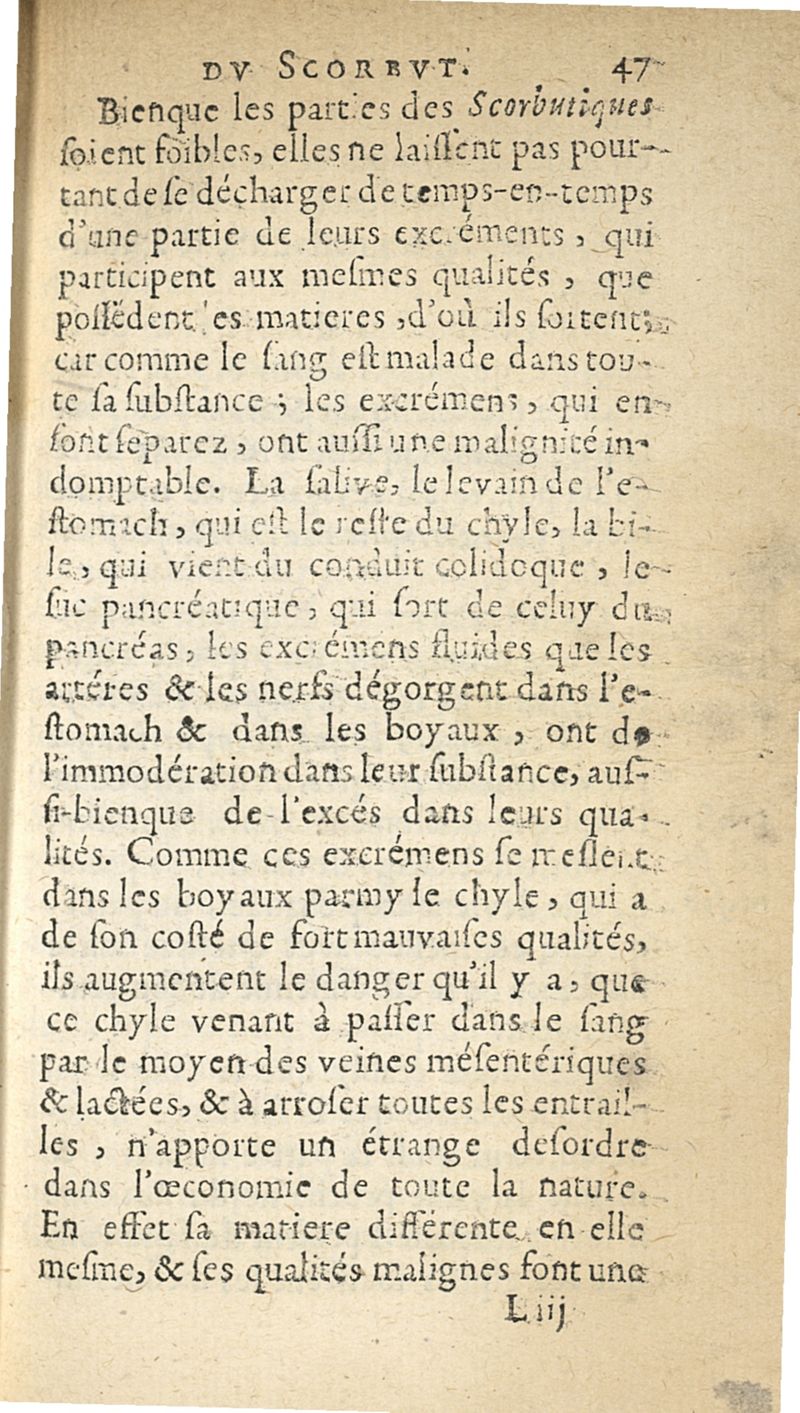 DV SCORBVT. 47
Bienque les parties des Scorbutiques
ſoient foibles, elles ne laiſſent pas pour-
tant de ſe décharger de temps-en-temps
d'une partie de leurs excréments, qui
participent aux meſmes qualités, que
poſſédent les matieres, d'où ils ſortent;
car comme le ſang eſt malade dans tou-
te ſa ſubſtance; les excrémens, qui en
ſont ſeparez, ont auſſi une malignité in-
domptable. La ſalive, le levain de l'e-
ſtomach, qui eſt le reſte du chyle, la bi-
le, qui vient du conduit colidoque, le
ſuc pancréatique, qui ſort de celuy du
pancréas, les excrémens fluides que les
artéres & les nerfs dégorgent dans l'e-
ſtomach & dans les boyaux, ont de
l'immodération dans leur ſubſtance, auſ-
ſi-bienque de l'excés dans leurs qua-
lités. Comme ces excrémens ſe meſlent
dans les boyaux parmy le chyle, qui a
de ſon coſté de fort mauvaiſes qualités,
ils augmentent le danger qu'il y a, que
ce chyle venant à paſſer dans le ſang
par le moyen des veines méſentériques
& lactées, & à arroſer toutes les entrail-
les, n'apporte un étrange deſordre
dans l'œconomie de toute la nature.
En effet ſa matiere différente en elle
meſme, & ſes qualités malignes font une
L iij